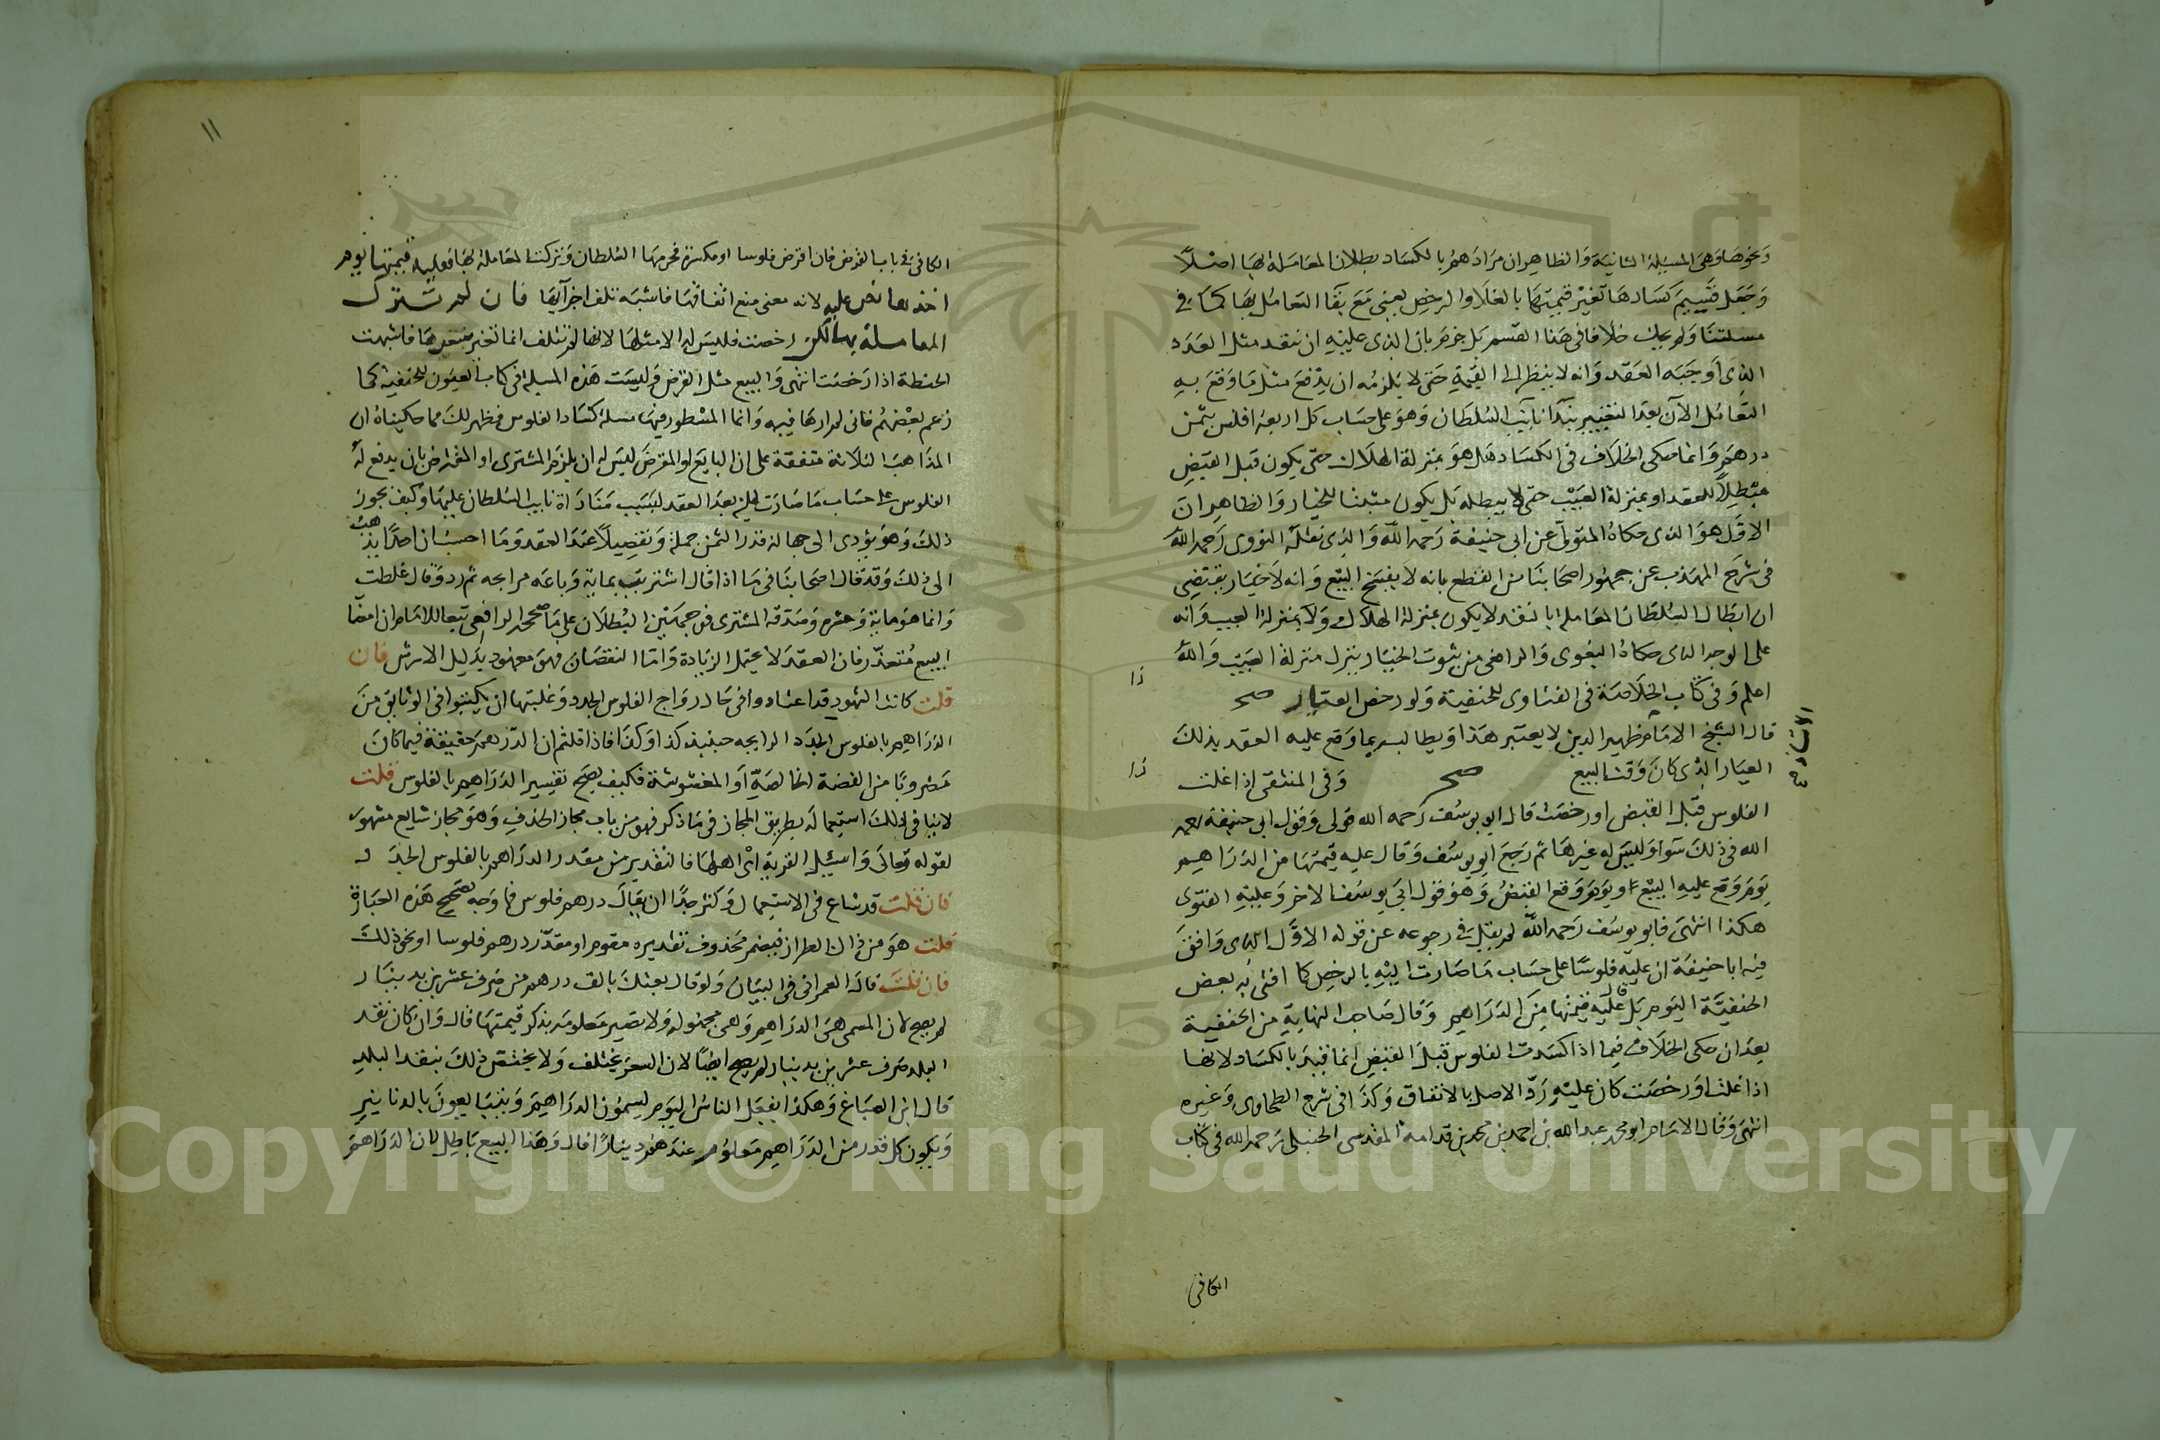 ونحوها وهي المسئلة الثانية والظاهر ان مرادهم بالكساد بطلان المعاملة بها اصلا
وجعل قسيم كسادها تغير قيمتها بالغلا والرخص يعني مع بقا التعامل بها كما في
مسئلتنا ولم يحك خلافا في هذا القسم بل جزم بان الذي عليه ان ينقد مثل العدد
الذي اوجبه العقد وانه لا ينظر الى القيمة حتى لا يلزمه ان يدفع مثل ما وقع به
التعامل الآن بعد التغيير بندا نايب السلطان وهو على حساب كل اربعة افلس بثمن
درهم وانما حكى الخلاف في الكساد هل هو بمنزلة الهلاك حتى يكون قبل القبض
مبطلا للعقد او بمنزلة العيب حتى لا يبطله بل يكون مثبتا للخيار والظاهر ان
الاول هو الذي حكاه المتولي عن ابي حنيفة رحمه الله والذي نقله النووي رحمه الله
في شرح المهذب عن جمهور اصحابنا من القطع بانه لا يفسخ البيع وانه لا خيار يقتضي
ان ابطال السلطان المعاملة بالنقد لا يكون بمنزلة الهلاك ولا بمنزلة العيب وانه
على الوجه الذي حكاه البغوي والرافعي من ثبوت الخيار ينزل منزلة العيب والله
اعلم وفي كتاب الخلاصة في الفتاوى للحنفية ولو رخص العيار صح
قال الشيخ الامام ظهير الدين لا يعتبر هذا ويطالبه بما وقع عليه العقد بذلك
العيار الذي كان وقت البيع صح وفي المنتقى اذا غلت
الفلوس قبل القبض او رخصت قال ابو يوسف رحمه الله قولي وقول ابي حنيفة رحمه
الله في ذلك سوا وليس له غيرها ثم رجع ابو يوسف وقال عليه قيمتها من الدراهم
يوم وقع عليه البيع او يوم وقع القبض وهو قول ابي يوسف الاخر وعليه الفتوى
هكذا انتهى فابو يوسف رحمه الله لم يقل في رجوعه عن قوله الاول الذي وافق
فيه ابا حنيفة ان عليه فلوسا على حساب ما صارت اليه بالرخص كما افتى به بعض
الحنفية اليوم بل قال عليه قيمتها من الدراهم وقال صاحب النهاية من الحنفية
بعد ان حكى الخلاف فيما اذا كسدت الفلوس قبل القبض انما قيد بالكساد لانها
اذا غلت او رخصت كان عليه رد الاصل بالاتفاق وكذا في شرح الطحاوي وغيره
انتهى وقال الامام ابو محمد عبد الله بن احمد بن محمد بن قدامة المقدسي الحنبلي رحمه الله في كتاب
الكافي
١١
الكافي في باب القرض فان اقرض فلوسا او مكسرة فحرمها السلطان وتركت المعاملة بها فعليه قيمتها يوم
اخذها نص عليه لانه معنى منع انفاقها فاشبه تلف اجزآيها فان لم تترك
المعاملة بها لكن رخصت فليس له الا مثلها لانها لم تتلف انما تغير سعرها فاشبهت
الحنطة اذا رخصت انتهى والبيع مثل القرض وليست هذه المسئلة في كتاب العيون للحنفية كما
زعم بعضهم فاني لم ارها فيه وانما المسطور فيها مسئلة كساد الفلوس فظهر لك مما حكيناه ان
المذاهب الثلاثة متفقة على ان البايع او المقرض ليس له ان يلزم المشتري او المقترض بان يدفع له
الفلوس على حساب ما صارت اليه بعد العقد لسبب مناداة نايب السلطان عليها وكيف يجوز
ذلك وهو يؤدي الى جهالة قدر الثمن جملة وتفصيلا عند العقد وما احسب ان احدا يذهب
الى ذلك وقد قال اصحابنا في ما اذا قال اشتريت بماية وباعه مرابحه ثم رد وقال غلطت
وانما هو ماية وعشرة وصدقه المشتري فوجهين البطلان على ما صححه الرافعي تبعا للامام ان امضا
البيع متعذر فان العقد لا يحتمل الزيادة واما النقصان فهو معهود بدليل الارش فان
قلت كانت الشهود قد اعتادوا في حال رواج الفلوس الجدد وغلبتها ان يكتبوا في الوثايق من
الدراهم بالفلوس الجدد الرايجه حينيذ كذا وكذا فاذا قلتم ان الدرهم حقيقة فيما كان
مضروبا من الفضة الخالصة او المغشوشة فكيف يصح تفسير الدراهم بالفلوس قلت
لا ينافي ذلك استعماله بطريق المجاز في ما ذكر فهو من باب مجاز الحذف وهو مجاز شايع مشهور
لقوله تعالى واسئل القرية اي اهلها فالتقدير من مقدر الدراهم بالفلوس الجدد
فان قلت قد شاع في الاستعمال وكثر جدا ان يقال درهم فلوس فما وجه تصحيح هذه العبارة
قلت هو من ذلك الطراز فيضم محذوف تقديره مقوم او مقدر درهم فلوسا او نحو ذلك
فان قلت قال العمراني في البيان ولو قال بعتك بالف درهم من صرف عشرين بدينار
لم يصح لان المسمى هي الدراهم وهي مجهولة ولا تصير معلومه بذكر قيمتها قال وان كان نقد
البلد صرف عشرين بدينار لم يصح ايضا لان السعر يختلف ولا يختص ذلك بنقد البلد
قال ابن الصباغ وهكذا يفعل الناس اليوم يسمون الدراهم ويتبايعون بالدنانير
ويكون كل قدر من الدراهم معلوم عندهم دينارا قال وهذا البيع باطل لان الدراهم